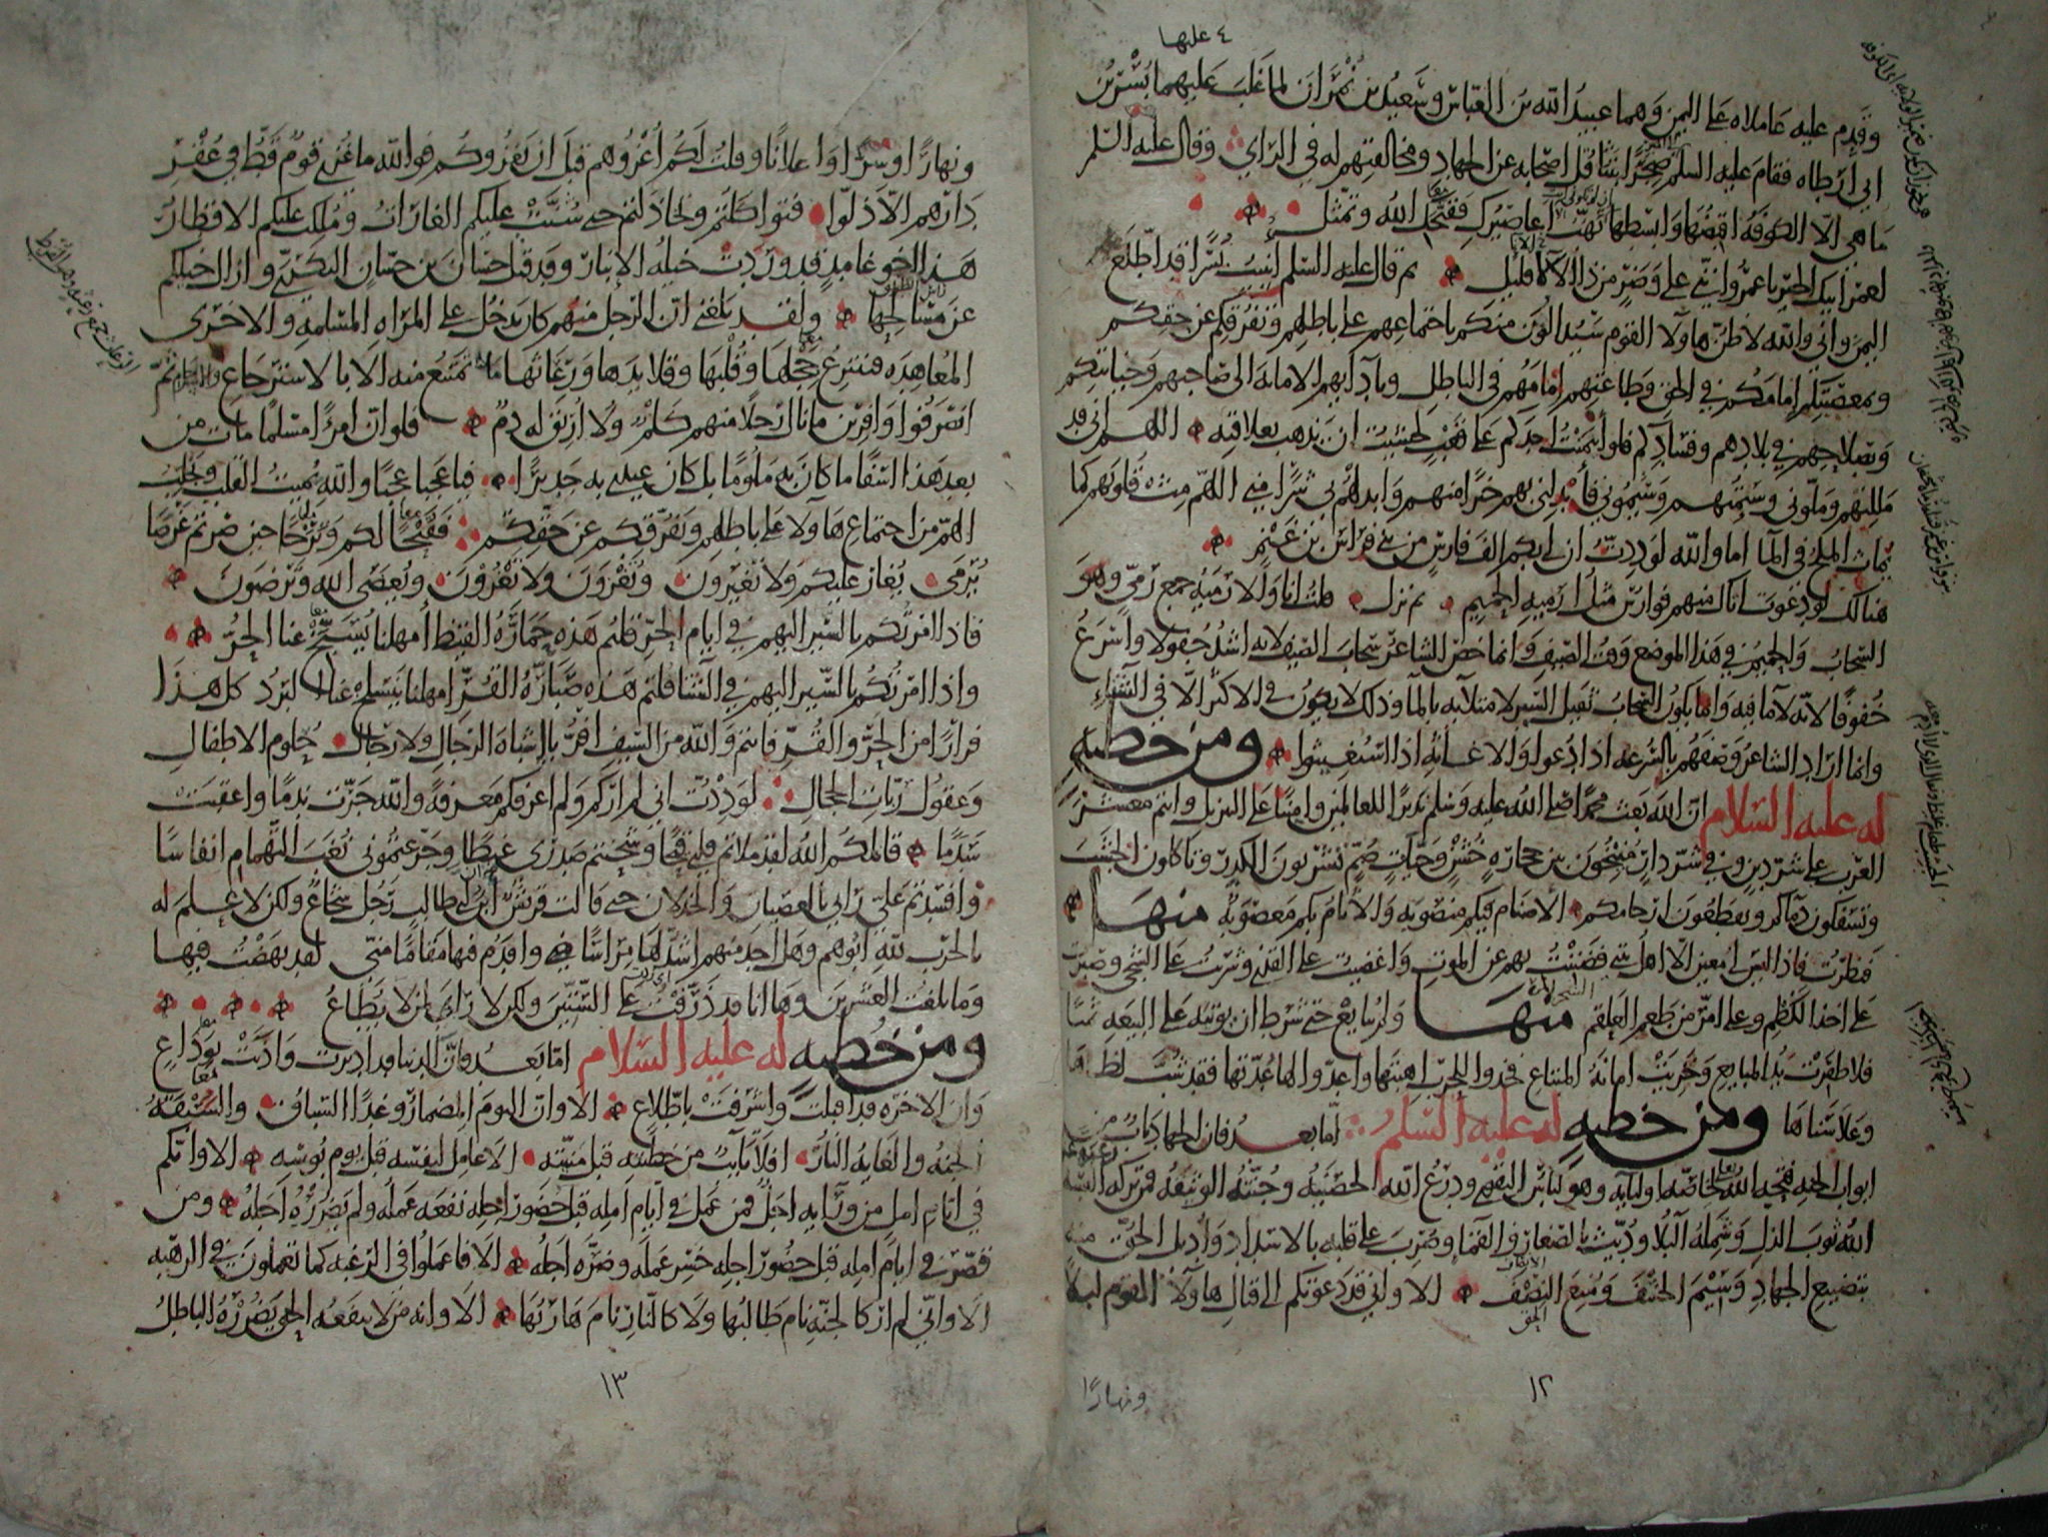 ٤ عليها
وقدم عليه عاملاه على اليمن وهما عبيد الله بن العباس وسعيد بن نمران لما غلب عليهما بسر بن
ابي ارطاه فقام عليه السلم ضجرا بتثاقل اصحابه عن الجهاد ومخالفتهم له في الراي وقال عليه السلم
ما هي الا الكوفة اقبضها وابسطها تهب اعاصيرك فقبحك الله وتمثل
لعمر ابيك الخير يا عمرو انني على وضر من ذا الاناء قليل ثم قال عليه السلم انبيت بسرا قد اطلع
اليمن واني والله لاظن هاولا القوم سيدالون منكم باجتماعهم على باطلهم وتفرقكم عن حقكم
وبمعصيتكم امامكم في الحق وطاعتهم امامهم في الباطل وبادايهم الامانة الى صاحبهم وخيانتكم
وبصلاحهم في بلادهم وفسادكم فلو ائتمنت احدكم على قعب لخشيت ان يذهب بعلاقته اللهم اني قد
مللتهم وملوني وسئمتهم وسئموني فابدلني بهم خيرا منهم وابدلهم بي شرا مني اللهم مث قلوبهم كما
يماث الملح في الما اما والله لوددت ان لي بكم الف فارس من بني فراس بن غنم
هنالك لو دعوت اتاك منهم فوارس مثل ارمية الحميم ثم نزل قلت انا والارمية جمع رمي وهو
السحاب والحميم في هذا الموضع وقت الصيف وانما خص الشاعر سحاب الصيف لانه اشد جفولا واسرع
خفوفا لانه لا ما فيه وانما يكون السحاب ثقيل السير لامتلايه بالما وذلك لا يكون في الاكثر الا في الشتاء
وانما اراد الشاعر وصفهم بالسرعة اذا دعوا والاغاثة اذا استغيثوا ومن خطبة
له عليه السلام ان الله بعث محمدا صلى الله عليه وسلم نذيرا للعالمين وامينا على التنزيل وانتم معشر
العرب على شر دين وفي شر دار منيخون بين حجارة خشن وحيات صم تشربون الكدر وتاكلون الجشب
وتسفكون دماكم وتقطعون ارحامكم الاصنام فيكم منصوبة والاثام بكم معصوبة منها
فنظرت فاذا ليس لي معين الا اهل بيتي فضننت بهم عن الموت واغضيت على القذى وشربت على الشجى وصبرت
على اخذ الكظم وعلى امر من طعم العلقم منها ولم يبايع حتى شرط ان يوتيه على البيعة ثمنا
فلا ظفرت يد المبايع وخزيت امانة المبتاع فخذوا للحرب اهبتها واعدوا لها عدتها فقد شب لظاها
وعلا سناها ومن خطبة له عليه السلم اما بعد فان الجهاد باب من
ابواب الجنة فتحه الله لخاصة اوليايه وهو لباس التقوى ودرع الله الحصينة وجنته الوثيقة فمن تركه البسه
الله ثوب الذل وشمله البلا وديث بالصغار والقما وضرب على قلبه بالاسداد واديل الحق منه
بتضييع الجهاد وسيم الخسف ومنع النصف الا واني قد دعوتكم الى قتال هاولا القوم ليلا
ونهارا
١٢
ونهارا وسرا واعلانا وقلت لكم اغزوهم قبل ان يغزوكم فوالله ما غزي قوم قط في عقر
دارهم الا ذلوا فتواكلتم وتخاذلتم حتى شنت عليكم الغارات وملكت عليكم الاقطار
هذا اخو غامد قد وردت خيله الانبار وقد قتل حسان بن حسان البكري وازال خيلكم
عن مسالحها ولقد بلغني ان الرجل منهم كان يدخل على المراه المسلمة والاخرى
المعاهدة فينتزع حجلها وقلبها وقلايدها ورعاثها ما تمتنع منه الا بالاسترجاع والاسترحام ثم
انصرفوا وافرين ما نال رجلا منهم كلم ولا اريق له دم فلو ان امرءا مسلما مات من
بعد هذا اسفا ما كان به ملوما بل كان عندي به جديرا فيا عجبا عجبا والله يميت القلب ويجلب
الهم من اجتماع هاولا على باطلهم وتفرقكم عن حقكم فقبحا لكم وترحا حين صرتم غرضا
يرمى يغار عليكم ولا تغيرون وتغزون ولا تغزون ويعصى الله وترضون
فاذا امرتكم بالسير اليهم في ايام الحر قلتم هذه حمارة القيظ امهلنا يسبخ عنا الحر
واذا امرتكم بالسير اليهم في الشتا قلتم هذه صبارة القر امهلنا ينسلخ عنا البرد كل هذا
فرارا من الحر والقر فانتم والله من السيف افر يا اشباه الرجال ولا رجال حلوم الاطفال
وعقول ربات الحجال لوددت اني لم اركم ولم اعرفكم معرفة والله جرت ندما واعقبت
سدما قاتلكم الله لقد ملاتم قلبي قيحا وشحنتم صدري غيظا وجرعتموني نغب التهمام انفاسا
وافسدتم علي رايي بالعصيان والخذلان حتى قالت قريش ان ابن ابي طالب رجل شجاع ولكن لا علم له
بالحرب لله ابوهم وهل احد منهم اشد لها مراسا واقدم فيها مقاما مني لقد نهضت فيها
وما بلغت العشرين وها انا قد ذرفت على الستين ولكن لا راي لمن لا يطاع
ومن خطبة له عليه السلام اما بعد فان الدنيا قد ادبرت واذنت بوداع
وان الاخرة قد اقبلت واشرفت باطلاع الا وان اليوم المضمار وغدا السباق والسبقة
الجنة والغاية النار افلا تايب من خطيته قبل منيته الا عامل لنفسه قبل يوم بوسه الا وانكم
في ايام امل من ورايه اجل فمن عمل في ايام امله قبل حضور اجله نفعه عمله ولم يضرره اجله ومن
قصر في ايام امله قبل حضور اجله خسر عمله وضره اجله الا فاعملوا في الرغبة كما تعملون في الرهبة
الا واني لم ار كالجنة نام طالبها ولا كالنار نام هاربها الا وانه من لا ينفعه الحق يضرره الباطل
١٣